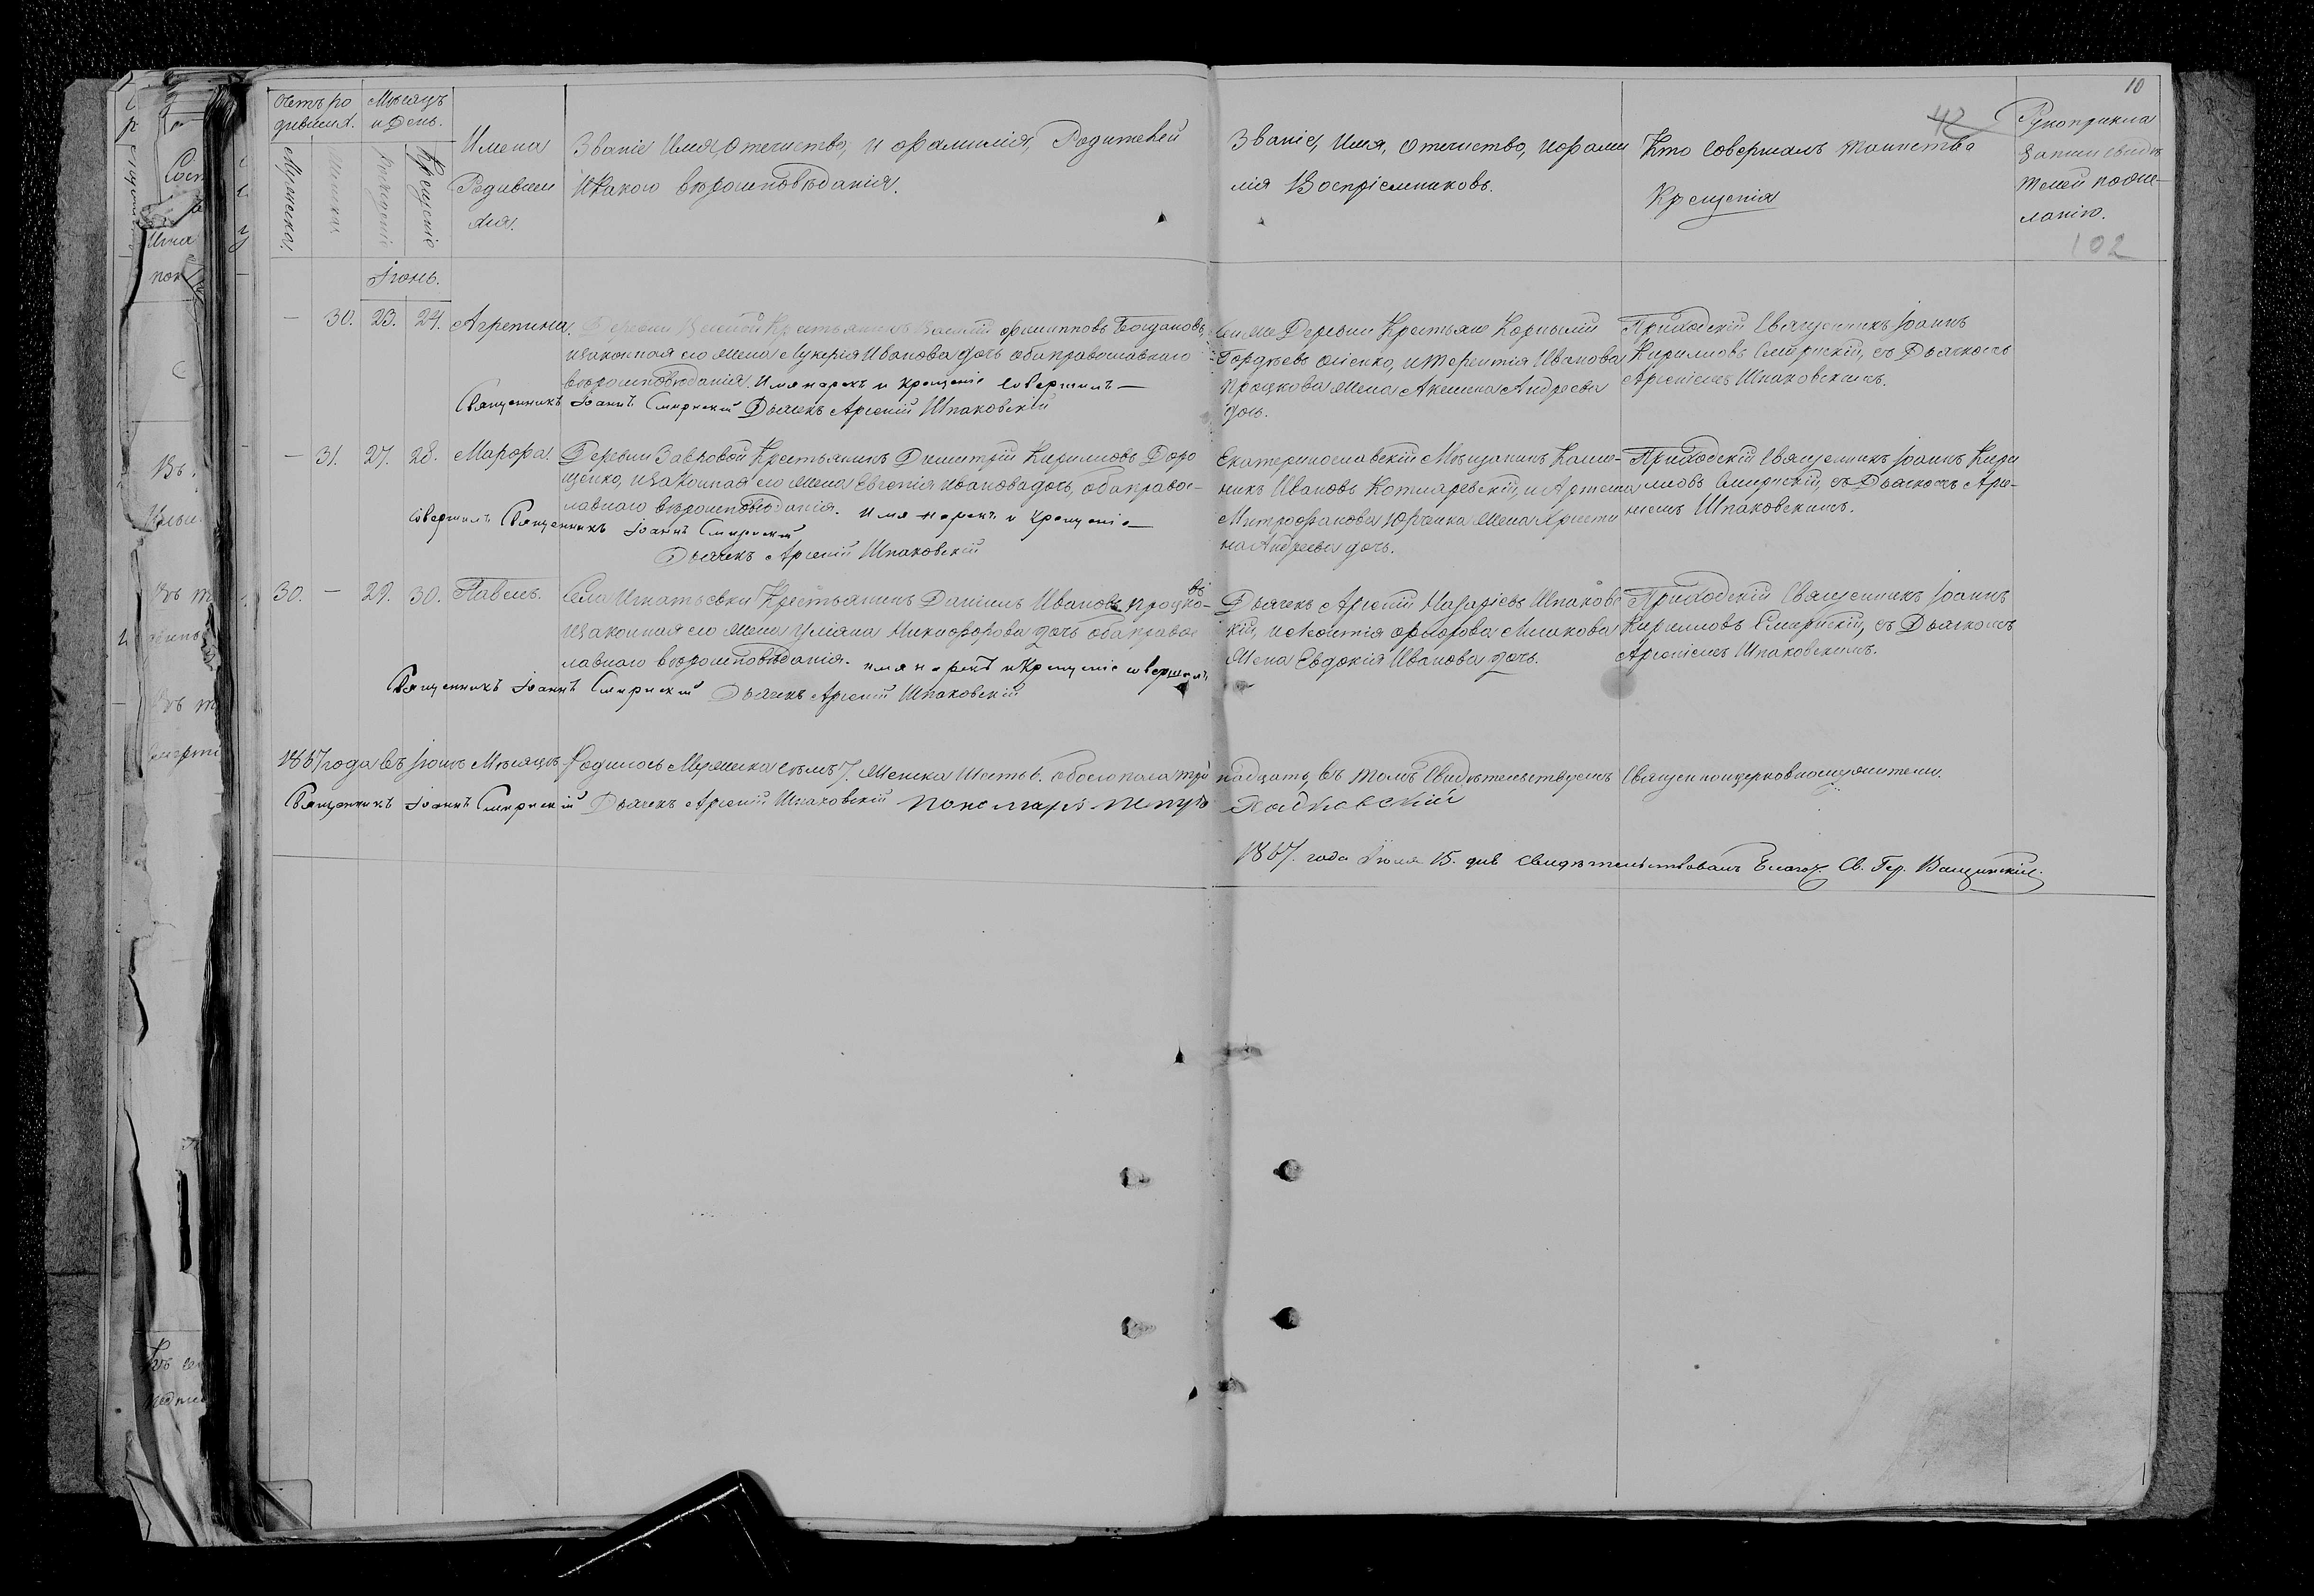 10
42
102
Счетъ ро
дившихся.
Мѣсяцъ
и День.
Мужеска.
Женска.
Рожденіе
Крещеніе
Имена
Родивши
хся.
Званіе Имя Отечиство, и Фамилія, Родителей
и Какого вѣроисповѣданія.
Званіе, Имя, Отечиство, и Фами
лія Воспріемниковъ.
Кто Совершалъ Таинство
Крещенія
Рукоприкла
записи свидѣ
телей по же-
ланію.
Іюнь.
— 30. 23. 24. Агрепина.
Деревни Крестьянинъ Василій Филипповъ Богдановъ,
и законная его Жена Лукерія Иванова дочь оба православнаго
вѣроисповѣданія. Имя нарекъ и Крещеніе Совершилъ —
Священникъ Іоаннъ Смирнскій Дьячекъ Арсеній Шпаковскій
Деревни Крестьяне Корнылій
Гордѣевъ и Терентія Иванова
Процкова Жена Акилина Андреева
дочь.
Приходскій Священникъ Іоаннъ
Кириловъ Смирнскій, съ Дьячкомъ
Арсеніемъ Шпаковскимъ.
— 31. 27. 28. Марфа.
Деревни Завѣовой Крестьянинъ Димитрій Кириловъ Доро
щенко, и законная его Жена Евгенія Иванова дочь, оба правос-
лавнаго вѣроисповѣданія. Имя нарекъ и Крещеніе —
Совершилъ Священникъ Іоаннъ Смирнскій
Дьячекъ Арсеній Шпаковскій
Екатеринославскій Мѣщанинъ Кали-
никъ Ивановъ Котляревскій, и Артема
Митрофанова Юрченка Жена Христи
на Андреева дочь.
Приходскій Священникъ Іоаннъ Кири
ловъ Смирнскій, съ Дьячкомъ Арсе-
ніемъ Шпаковскимъ.
30. — 29. 30. Павелъ.
Села Игнатьевки Крестьянинъ Даніилъ Ивановъ Процко-
въ
и законная его Жена Уліяна Никифорова дочь оба правос
лавнаго вѣроисповѣданія. имя нарекъ и Крещеніе совершилъ
Священникъ Іоаннъ Смирнскій Дьячекъ Арсеній Шпаковскій
Дьячекъ Арсеній Назаріевъ Шпаковс
кій, и Леонтія Федорова Лишакова
Жена Евдокія Иванова дочь.
Приходскій Священникъ Іоаннъ
Кирилловъ Смирнскій, съ Дьячкомъ
Арсеніемъ Шпаковскимъ.
1867 года въ Іюнѣ Мѣсяцѣ Родилось Мужеска семь 7. Женска Шесть 6. обоего пола три надцать, въ томъ Свидѣтельствуемъ Священноицерковнослужители.
Священникъ Іоаннъ Смирнскій Дьячекъ Арсеній Шпаковскій Пономарь Петръ
1867. года Іюля 15. дня Свидѣтельствовалъ Благоч. Св. Гер. Ващинскій.